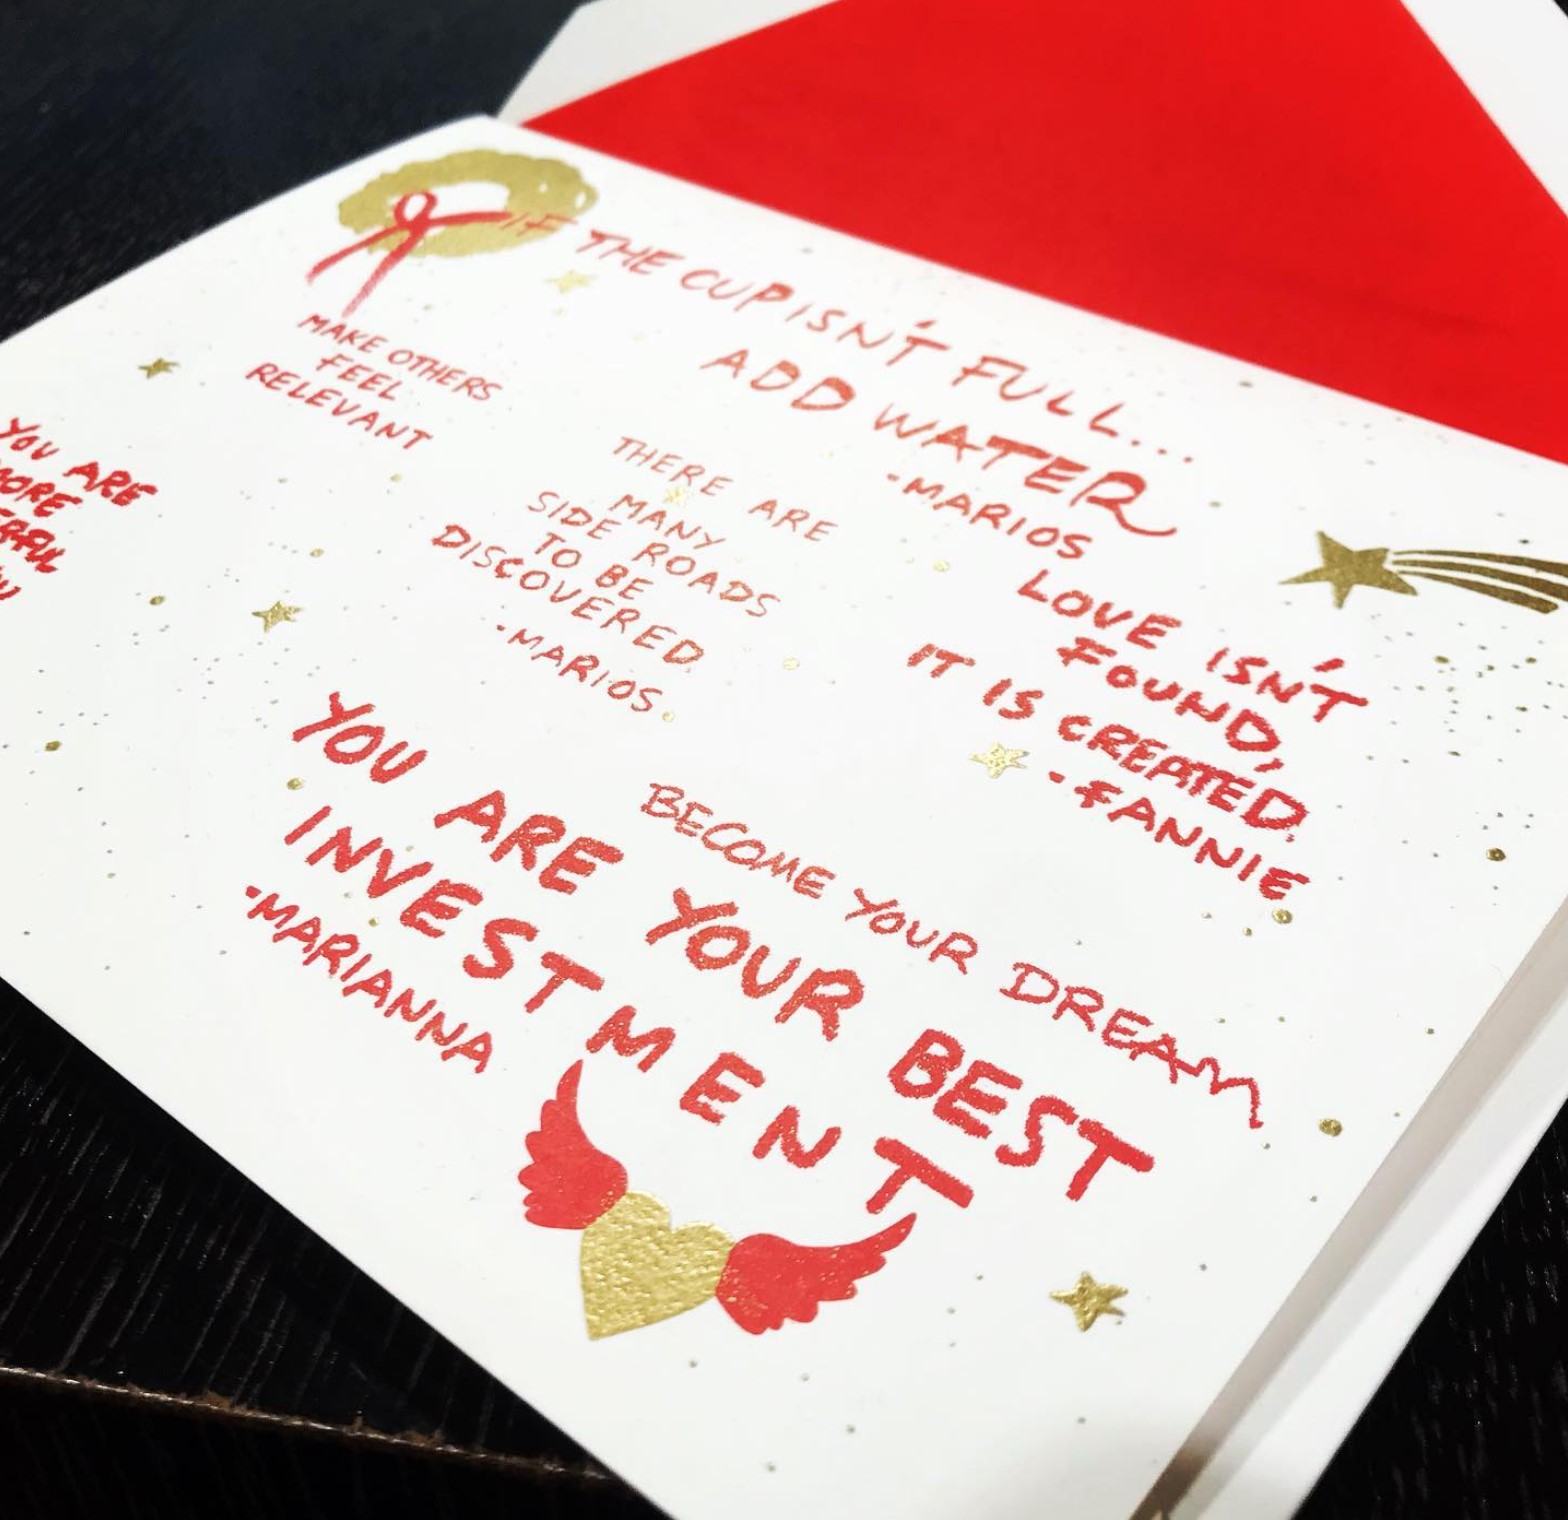 IF THE CUP ISN'T FULL...
ADD WATER
-MARIOS
MAKE OTHERS
FEEL
RELEVANT
YOU ARE
THERE ARE
MANY
SIDE ROADS
TO BE
DISCOVERED.
-MARIOS
LOVE ISN'T
FOUND,
IT IS CREATED.
-FANNIE
BECOME YOUR DREAM
YOU ARE YOUR BEST
INVESTMENT
-MARIANNA